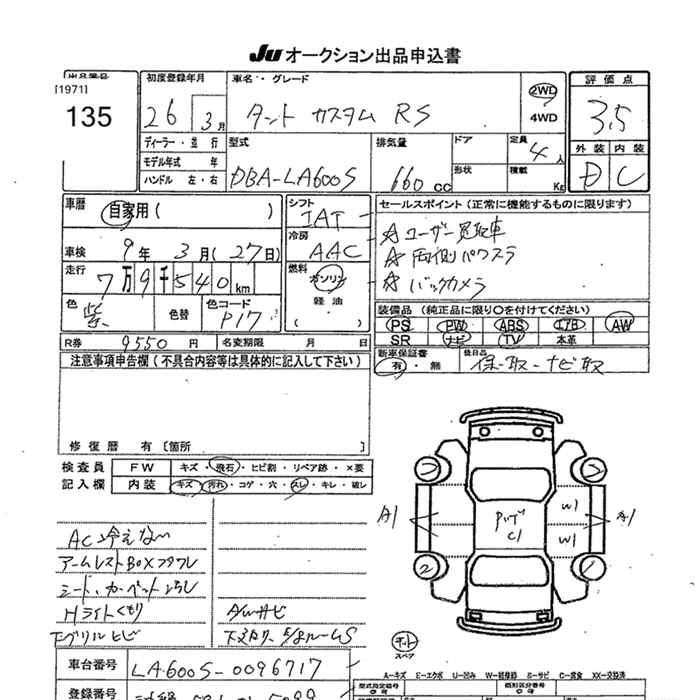 Ju オークション出品申込書
出品番号
[1971]
135
初度登録年月
26 3月
車名・グレード
タント カスタム RS
2WD
4WD
評価点
3.5
ディーラー・並行
モデル年式 年
ハンドル 左・右
型式
DBA-LA600S
排気量
660 cc
ドア
形状
定員
4人
積載
Kg
外装 内装
D C
車歴
自家用( )
車検
9年 3月(27日)
走行
7万9千540km
色
紫
色替
色コード
P17
シフト
IAT
冷房
AAC
燃料
ガソリン
軽油
( )
セールスポイント(正常に機能するものに限ります)
☆ ユーザー買取車
☆ 両側パワスラ
☆ バックカメラ
装備品(純正品に限り○を付けてください)
PS PW ABS エアB AW
SR ナビ TV 本革
R券 9550円
名変期限 月 日
新車保証書
有・無
後日品
保・取・ナビ取
注意事項申告欄(不具合内容等は具体的に記入して下さい)
修復歴 有〔箇所 〕
検査員
記入欄
FW キズ・飛石・ヒビ割・リペア跡・×要
内装 キズ・汚れ・コゲ・穴・スレ・キレ・破レ
AC冷えない
アームレストBOXフタワレ
シート・カーペットよごれ
Hライトくもり
下グリルヒビ
A/Wサビ
A1
W1
W1
A1
ルーフ
C1
2
2
1
1
スペア
車台番号
LA600S-0096717
登録番号
A-キズ E-エクボ U-凹み W-修理跡 S-サビ C-腐食 XX-交換済
型式指定番号
類別区分番号